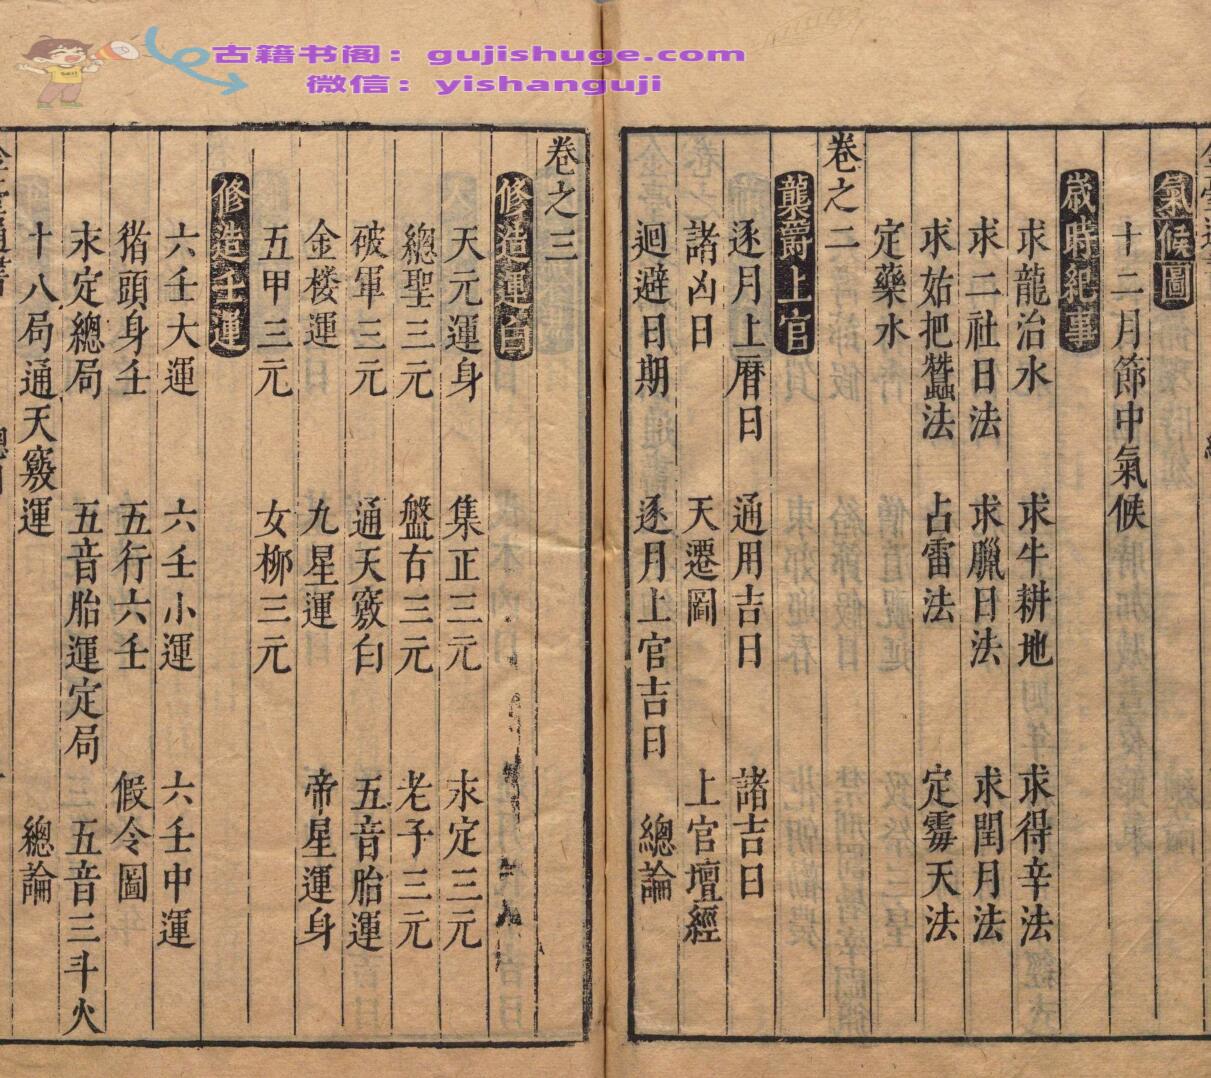 古籍书阁：gujishuge.com
微信：yishanguji
氣候圖
十二月節中氣候
歲時紀事
求龍治水 求牛耕地 求得辛法
求二社日法 求臘日法 求閏月法
求姑把蠶法 占雷法 定霉天法
定藥水
卷之二
襲爵上官
逐月上曆日 通用吉日 諸吉日
諸凶日 天遷圖 上官壇經
迴避日期 逐月上官吉日 總論
卷之三
修造運白
天元運身 集正三元 求定三元
總聖三元 盤古三元 老子三元
破軍三元 通天竅白 五音胎運
金楼運 九星運 帝星運身
五甲三元 女柳三元
修造壬運
六壬大運 六壬小運 六壬中運
指頭身壬 五行六壬 假令圖
求定總局 五音胎運定局 五音三斗火
十八局通天竅運 總論